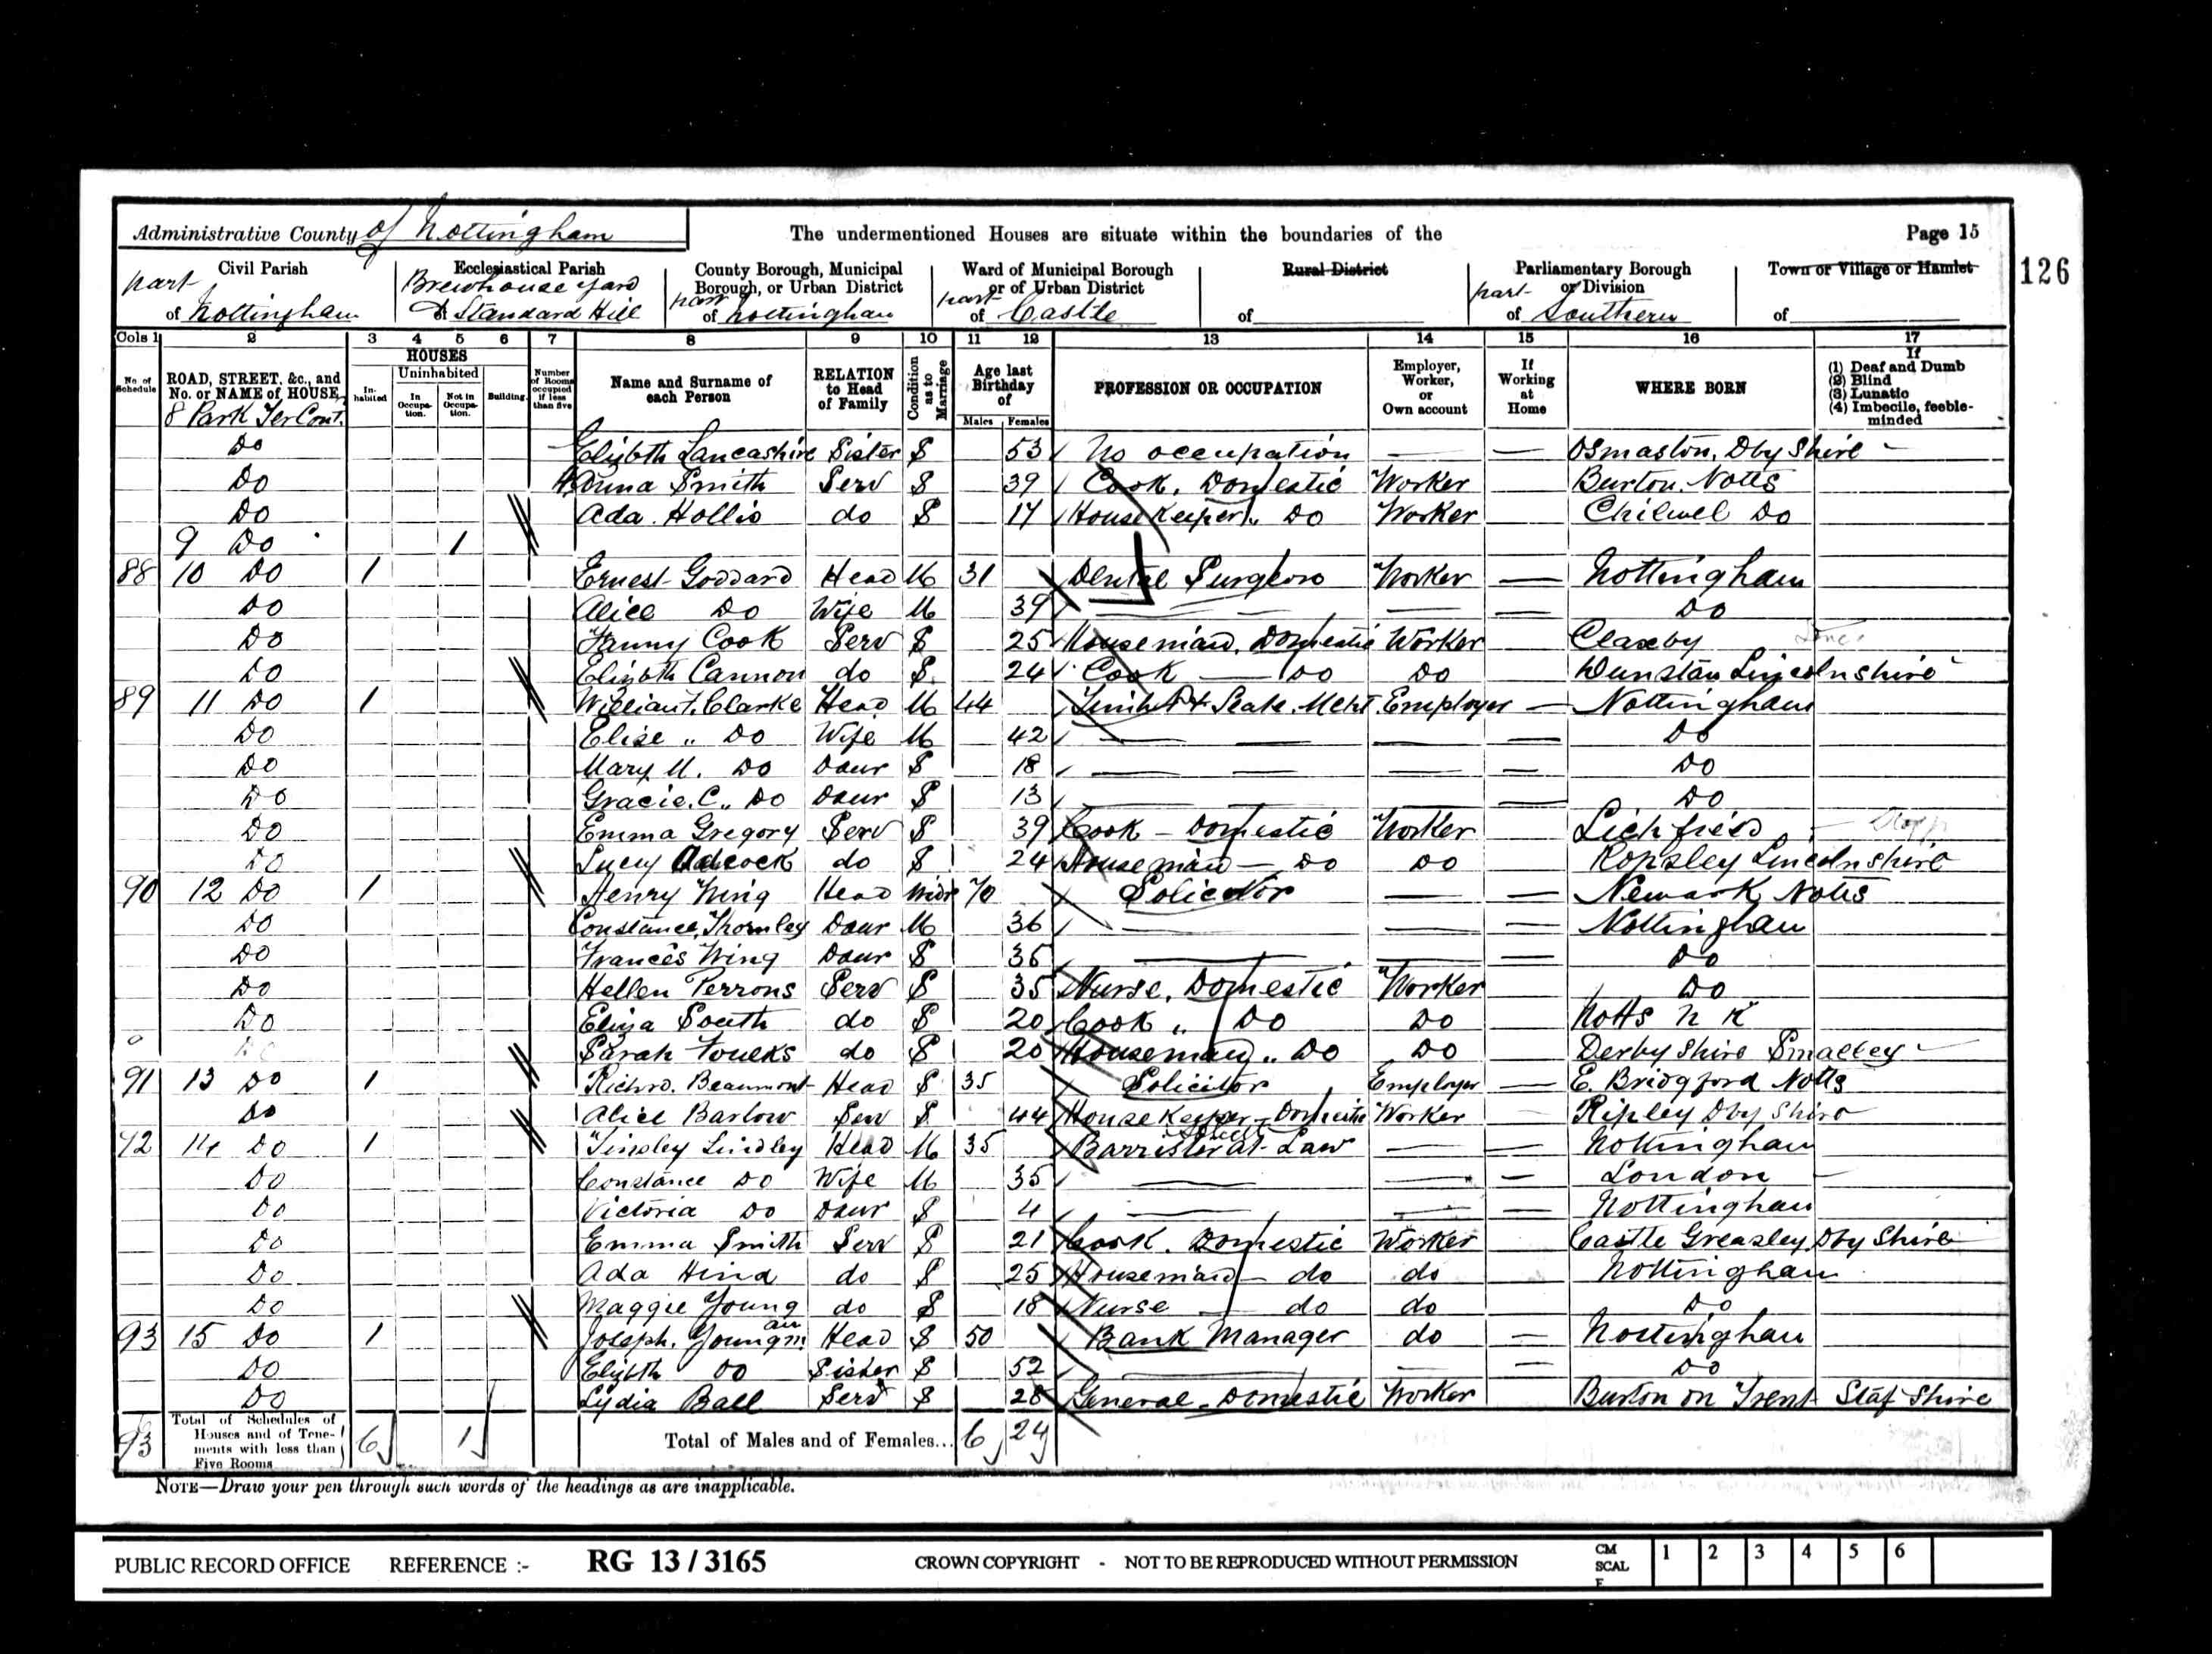 Administrative County of Nottingham The undermentioned Houses are situate within the boundaries of the Page 15
126
Civil Parish Ecclesiastical Parish County Borough, Municipal Borough, or Urban District Ward of Municipal Borough or of Urban District Rural District Parliamentary Borough or Division Town or Village or Hamlet
part of Nottingham Brewhouse Yard & Standard Hill part of Nottingham part of Castle of part of Southern of
Cols 1 2 3 4 5 6 7 8 9 10 11 12 13 14 15 16 17
No of Schedule ROAD, STREET, &c., and No. or NAME of HOUSE HOUSES Inhabited Uninhabited In Occupation. Not in Occupation. Building. Number of Rooms occupied if less than five Name and Surname of each Person RELATION to Head of Family Condition as to Marriage Age last Birthday of Males Females PROFESSION OR OCCUPATION Employer, Worker, or Own account If Working at Home WHERE BORN If (1) Deaf and Dumb (2) Blind (3) Lunatic (4) Imbecile, feeble-minded
8 Park Ter Cont.
Do Elizbth Lancashire Sister S 53 No occupation — — Osmaston, Dby Shire
Do Anna Smith Serv S 39 Cook, Domestic Worker Burton. Notts
Do Ada. Hollis do S 17 House Keeper „ Do Worker Chilwel Do
9 Do 1
88 10 Do 1 Ernest Goddard Head M 31 Dental Surgeon Worker — Nottingham
Do Alice Do Wife M 39 — — — Do
Do Fanny Cook Serv S 25 Housemaid, Domestic Worker Claxby
Do Elizbth Cannon do S 24 Cook — Do Do Dunstan Lincolnshire
89 11 Do 1 William F. Clarke Head M 44 Timber & Slate. Mcht Employer — Nottingham
Do Elise „ Do Wife M 42 — — — — Do
Do Mary M. Do Daur S 18 — — — — Do
Do Gracie. C„ Do Daur S 13 — — — — Do
Do Emma Gregory Serv S 39 Cook — Domestic Worker Lichfield
Do Lucy Adcock do S 24 Housemaid — Do Do Ropsley Lincolnshire
90 12 Do 1 Henry Wing Head Widr 70 Solicitor — — Newark Notts
Do Constance Thornley Daur M 36 — — — Nottingham
Do Frances Wing Daur S 35 — — — Do
Do Hellen Perrons Serv S 35 Nurse, Domestic Worker Do
Do Eliza South do S 20 Cook „ Do Do Notts N K
Do Sarah Foulks do S 20 Housemaid „ Do Do Derby Shire Smalley
91 13 Do 1 Richrd. Beaumont Head S 35 Solicitor Employer — E. Bridgford Notts
Do Alice Barlow Serv S 44 House Keeper — Domestic Worker Ripley Dby Shire
92 14 Do 1 Tinsley Lindley Head M 35 Barrister at Law — — Nottingham
Do Constance Do Wife M 35 — — — London
Do Victoria Do Daur S 4 — — — Nottingham
Do Emma Smith Serv S 21 Cook. Domestic Worker Castle Greasley Dby Shire
Do Ada Hind do S 25 Housemaid — do do Nottingham
Do Maggie Young do S 18 Nurse — do do Do
93 15 Do 1 Joseph. Youngman Head S 50 Bank Manager do — Nottingham
Do Elizbth Do Sister S 52 — — — Do
Do Lydia Ball Serv S 28 General — Domestic Worker Burton on Trent Staf Shire
93 Total of Schedules of Houses and of Tenements with less than Five Rooms 6 1 Total of Males and of Females... 6 24
NOTE—Draw your pen through such words of the headings as are inapplicable.
PUBLIC RECORD OFFICE REFERENCE :- RG 13 / 3165 CROWN COPYRIGHT - NOT TO BE REPRODUCED WITHOUT PERMISSION CM SCALE 1 2 3 4 5 6